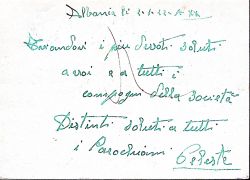 Albania li
Inviandovi i più devoti saluti
a voi e a tutti i
compagni della società
Distinti saluti a tutti
i Parochiani Celeste